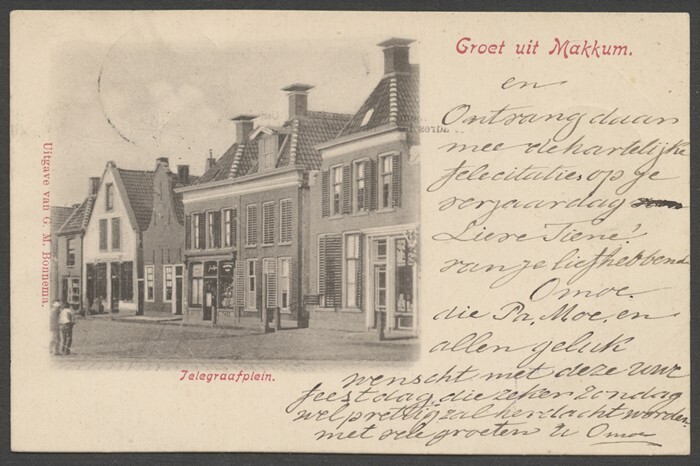 Groet uit Makkum.
en
Ontvang daar
mee de hartelijke
felicitaties op je
verjaardag
Lieve Tiene
van je liefhebbende
Omoe.
die Pa, Moe, en
allen geluk
wenscht met deze uwe
feestdag, die zeker zondag
wel prettig zal herdacht worden
met vele groeten U Omoe
Telegraafplein.
Uitgave van G. M. Bonnema.